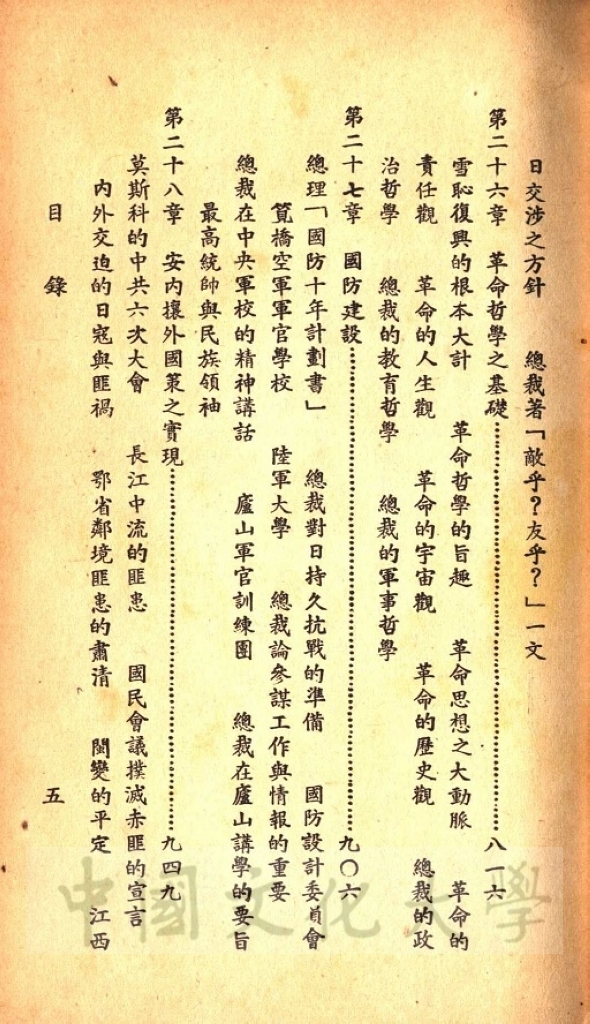 日交涉之方針　總裁著「敵乎？友乎？」一文
第二十六章　革命哲學之基礎……八一六
雪恥復興的根本大計　革命哲學的旨趣　革命思想之大動脈　革命的
責任觀　革命的人生觀　革命的宇宙觀　革命的歷史觀　總裁的政
治哲學　總裁的教育哲學　總裁的軍事哲學
第二十七章　國防建設……九〇六
總理「國防十年計劃書」　總裁對日持久抗戰的準備　國防設計委員會
筧橋空軍軍官學校　陸軍大學　總裁論參謀工作與情報的重要
總裁在中央軍校的精神講話　廬山軍官訓練團　總裁在廬山講學的要旨
最高統帥與民族領袖
第二十八章　安內攘外國策之實現……九四九
莫斯科的中共六次大會　長江中流的匪患　國民會議撲滅赤匪的宣言
內外交迫的日寇與匪禍　鄂省鄰境匪患的肅清　閩變的平定　江西
目錄　五
中國文化大學